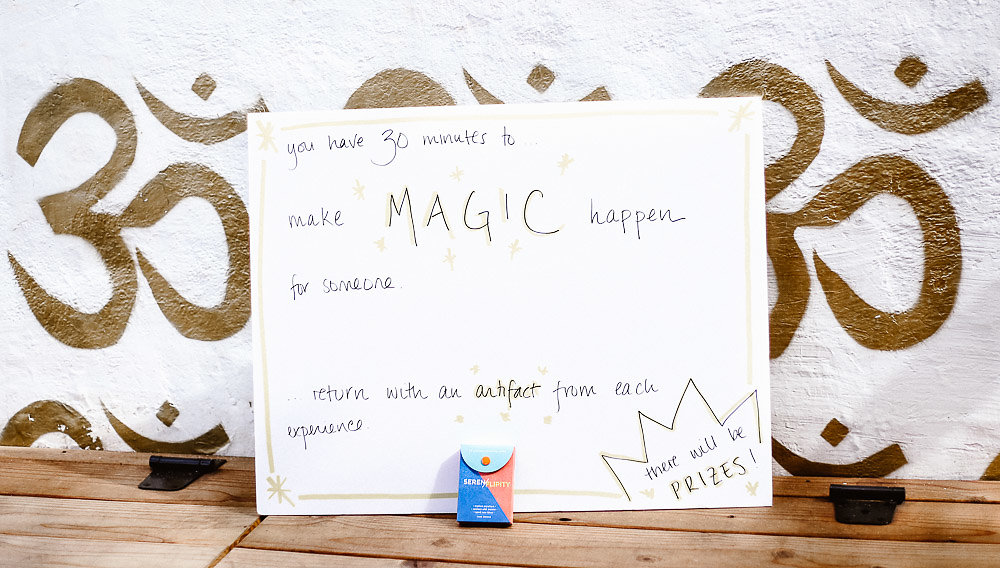 you have 30 minutes to ...
make MAGIC happen
for someone.
... return with an artifact from each
experience.
there will be
PRIZES!
SERENFLIPITY